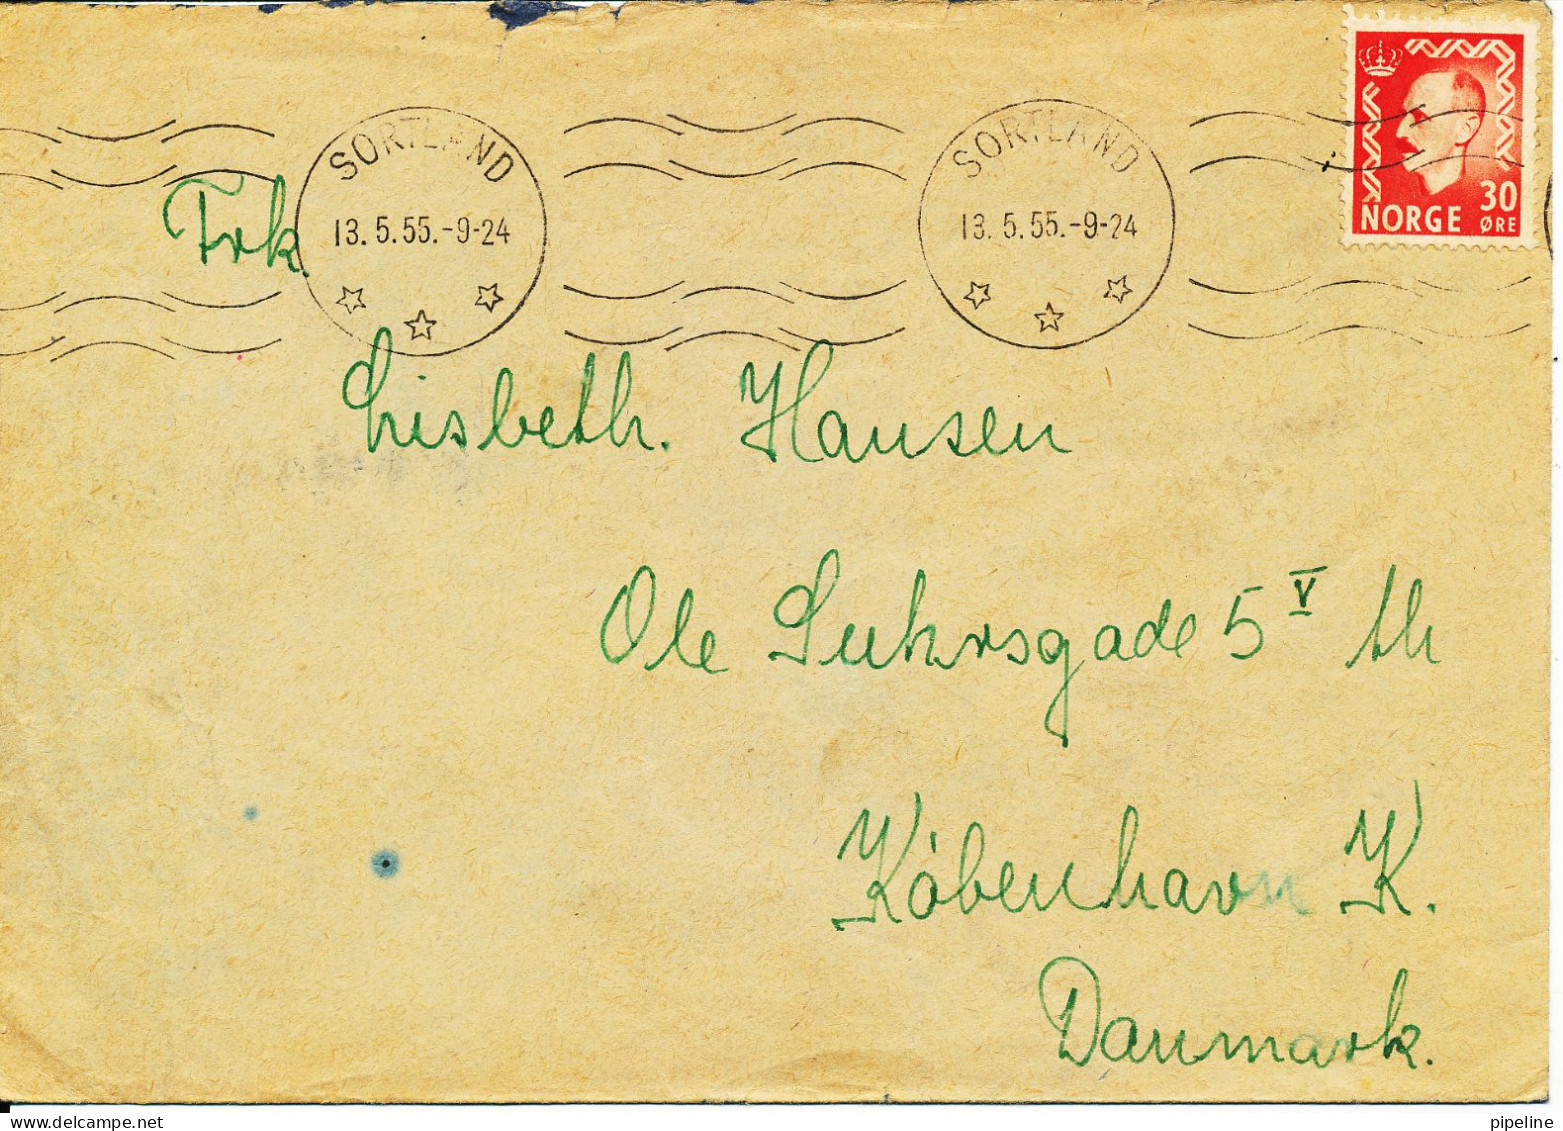 SORTLAND
13.5.55.-9-24
SORTLAND
13.5.55.-9-24
NORGE 30 ØRE
Frk.
Lisbeth. Hansen
Ole Suhrsgade 5 V th
København K.
Danmark.
pipeline